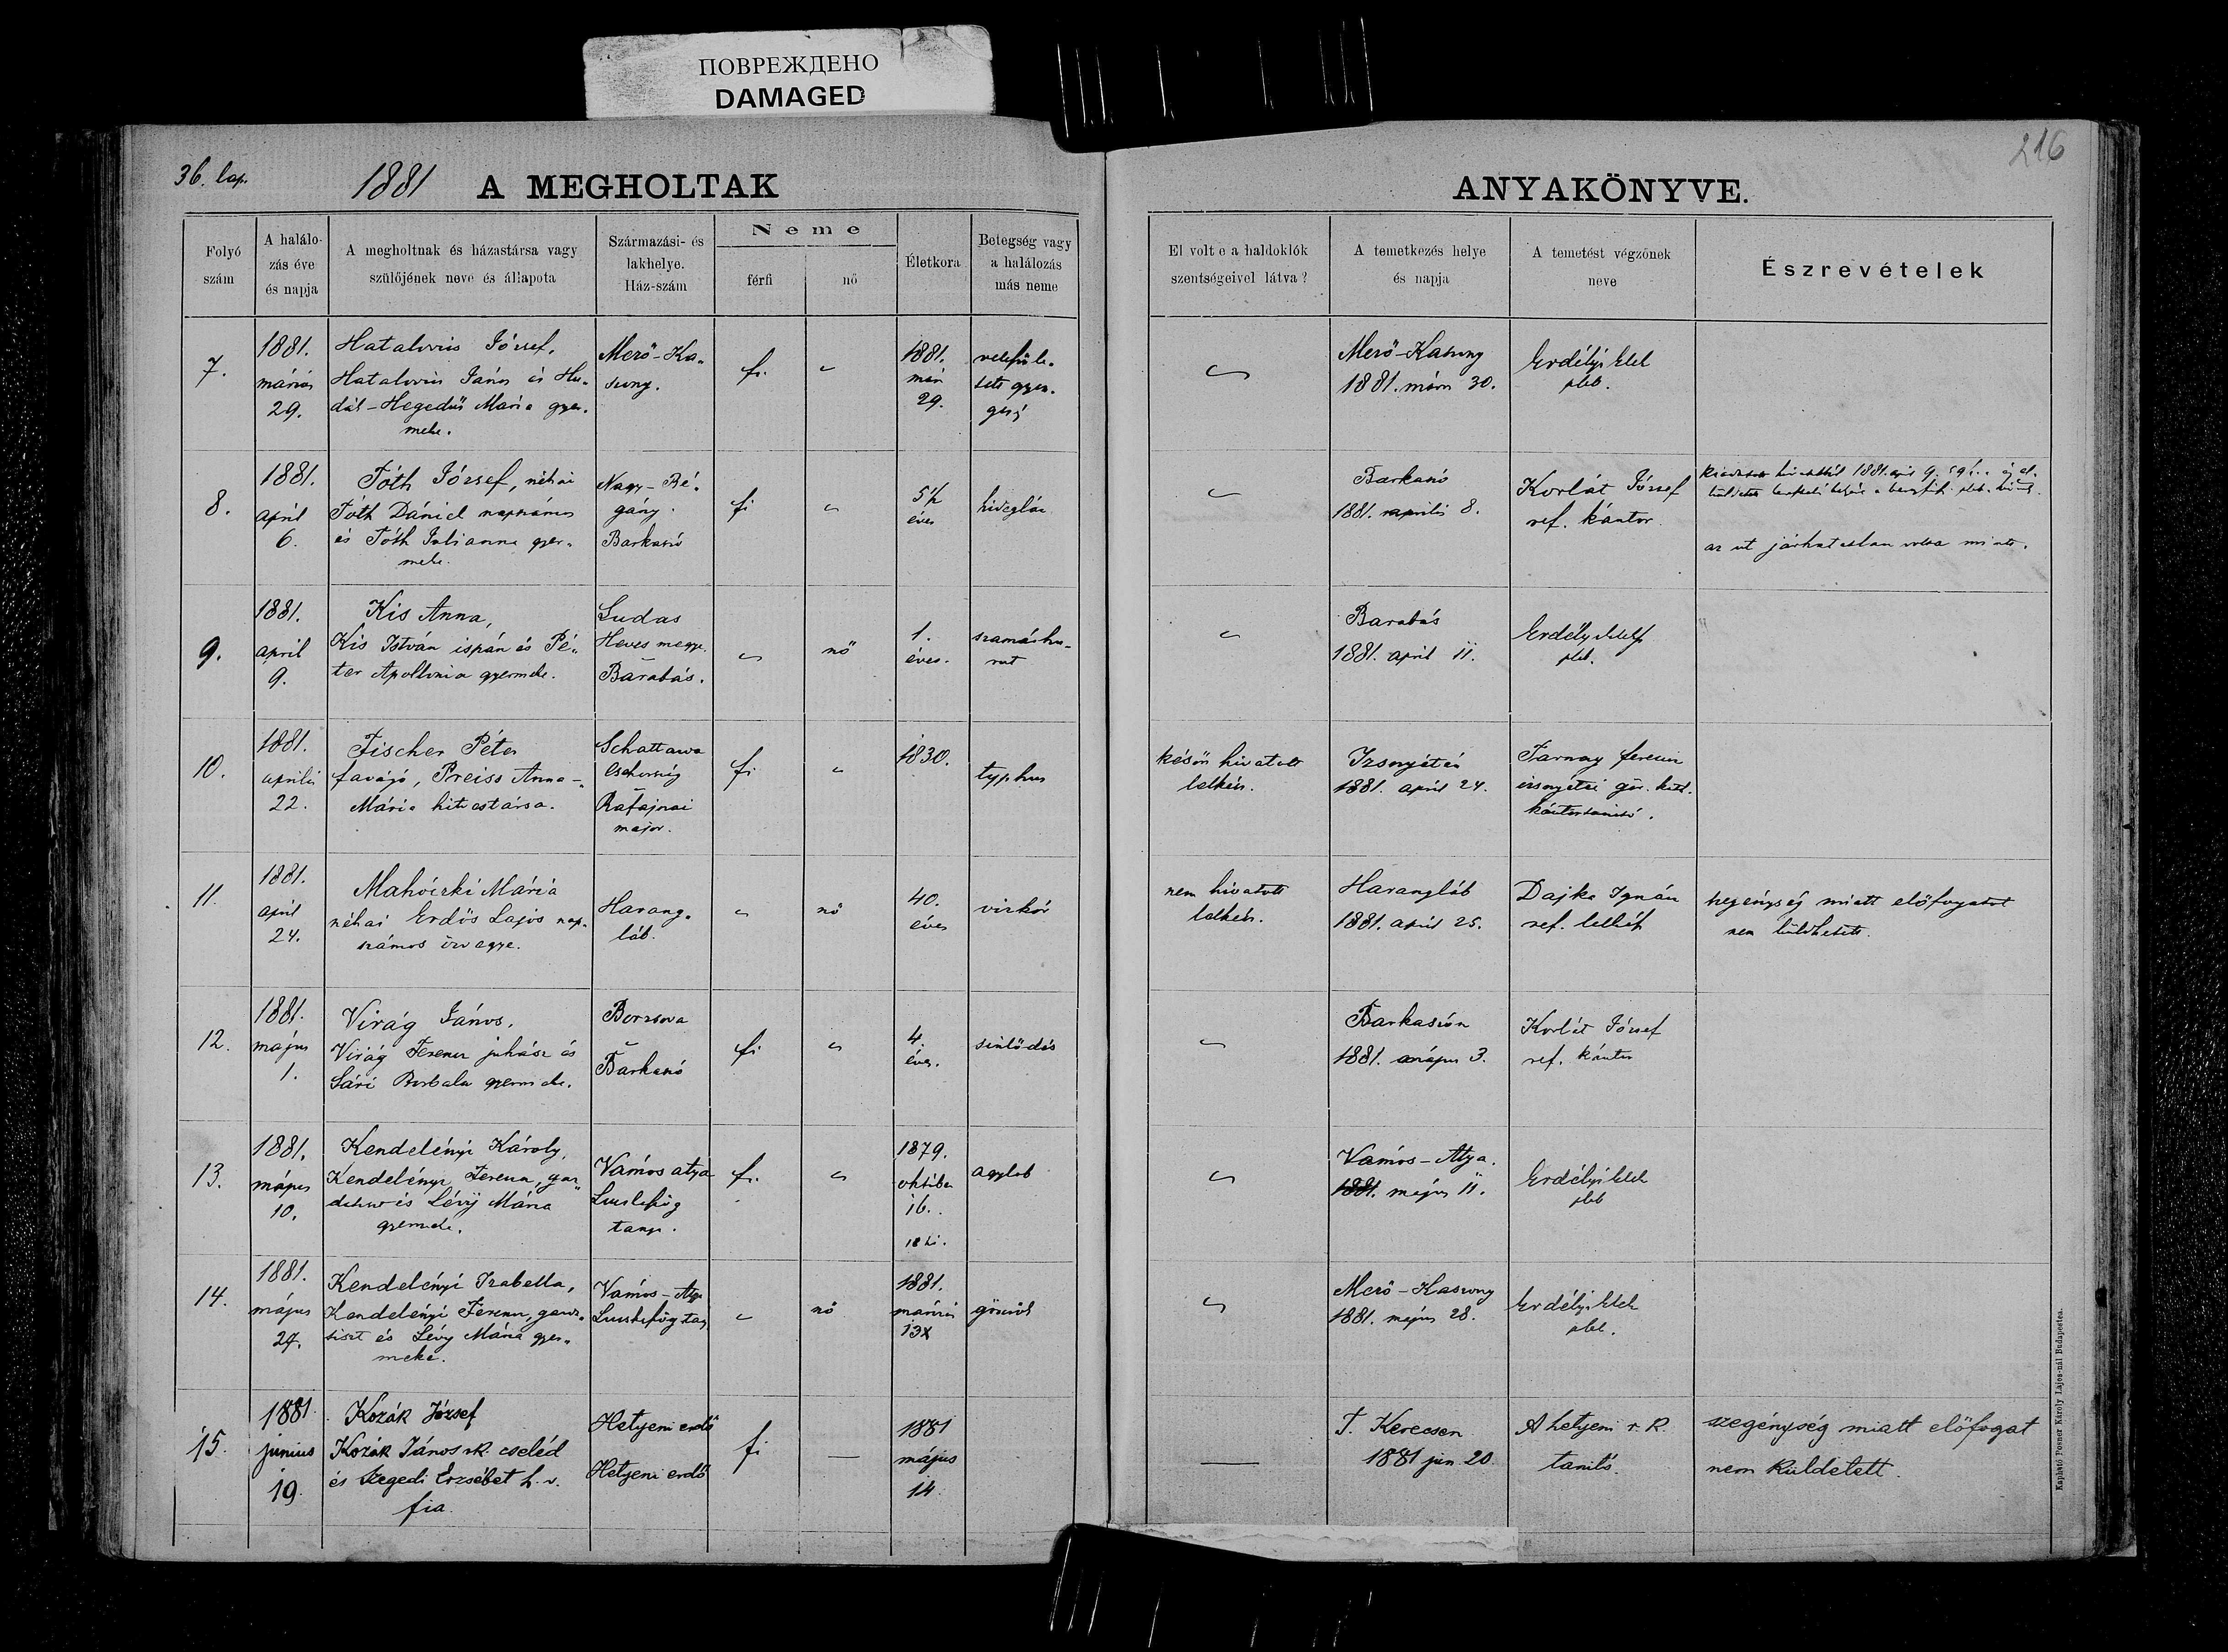 ПОВРЕЖДЕНО
DAMAGED
216
36. lap.
1881 A MEGHOLTAK
ANYAKÖNYVE.
Folyó
szám
A halálo-
zás éve
és napja
A megholtnak és házastársa vagy
szülőjének neve és állapota
Származási- és
lakhelye.
Ház-szám
Neme
férfi
nő
Életkora
Betegség vagy
a halálozás
más neme
El volt e a haldoklók
szentségeivel látva?
A temetkezés helye
és napja
A temetést végzőnek
neve
Észrevételek
7.
1881.
március
29.
József.
János és Hu-
dák-Hegedűs Mária gyer-
meke.
Mező-Ka-
szony.
fi.
1881.
márc
29.
Mező-Kaszony
1881. márc 30.
Erdélyi Elek
pleb.
8.
1881.
april
6.
Tóth József, néhai
Tóth Dániel napszámos
és Tóth Julianna gyer-
meke.
Nagy-Bé-
gány.
Barkaszó
fi
5½
éves
hidegláz
Barkaszó
1881. április 8.
Korlát József
ref. kántor.
1881. apr 9.
az út járhatatlan volta miatt.
9.
1881.
april
9.
Kis Anna,
Kis István ispán és Pé-
ter Apollonia gyermeke.
Ludas
Heves megye.
Barabás.
nő
1.
éves.
szamárhu-
rut
Barabás
1881. april 11.
Erdélyi Elek
pleb.
10.
1881.
április
22.
Fischer Péter
favágó, Preiss Anna-
Mária hitvestársa.
Schattawa
Csehország
Rafajnai
major.
fi
1830.
typhus
későn hivatott
lelkész.
Izsnyétén
1881. april 24.
Tarnay Ferencz
izsnyétei gör. kath.
kántortanító.
11.
1881.
april
24.
Mária
néhai Erdős Lajos nap-
számos özvegye.
Harang-
láb.
nő
40.
éves
vizkór
nem hivatott
lelkész.
Harangláb
1881. april 25.
Dajka Ignácz
ref. lelkész
szegénység miatt előfogatot
nem küldhetett.
12.
1881.
május
1.
Virág János.
Virág Ferencz juhász és
Sári Borbála gyermeke.
Borzsova
Barkaszó
fi
4.
éves.
sinlődés
Barkaszón
1881. május 3.
Korlát József
ref. kántor
13.
1881.
május
10.
Kendelényi Károly,
Kendelényi Ferencz, gaz-
és Lévy Mária
gyermeke.
Vámos atya
tanya.
fi.
1879.
október
16.
agylob
Vámos-Atya.
1881. május 11.
Erdélyi Elek
pleb
14.
1881.
május
27.
Kendelényi Izabella,
Kendelényi Ferencz, gazd.
tiszt és Lévy Mária gyer-
meke.
Vámos-Atya
nő
1881.
március
13
görcsök
Mező-Kaszony
1881. május 28.
Erdélyi Elek
pleb.
15.
1881
junius
19
Kozák József
Kozák János rk. cseléd
és Szegedi Erzsébet h. v.
fia.
Hetyeni erdő
Hetyeni erdő
fi
1881
május
14.
T. Kerecsen
1881 jun. 20
A hetyeni r. k.
tanitó.
szegénység miatt előfogat
nem küldetett.
Kapható Posner Károly Lajos-nál Budapesten.